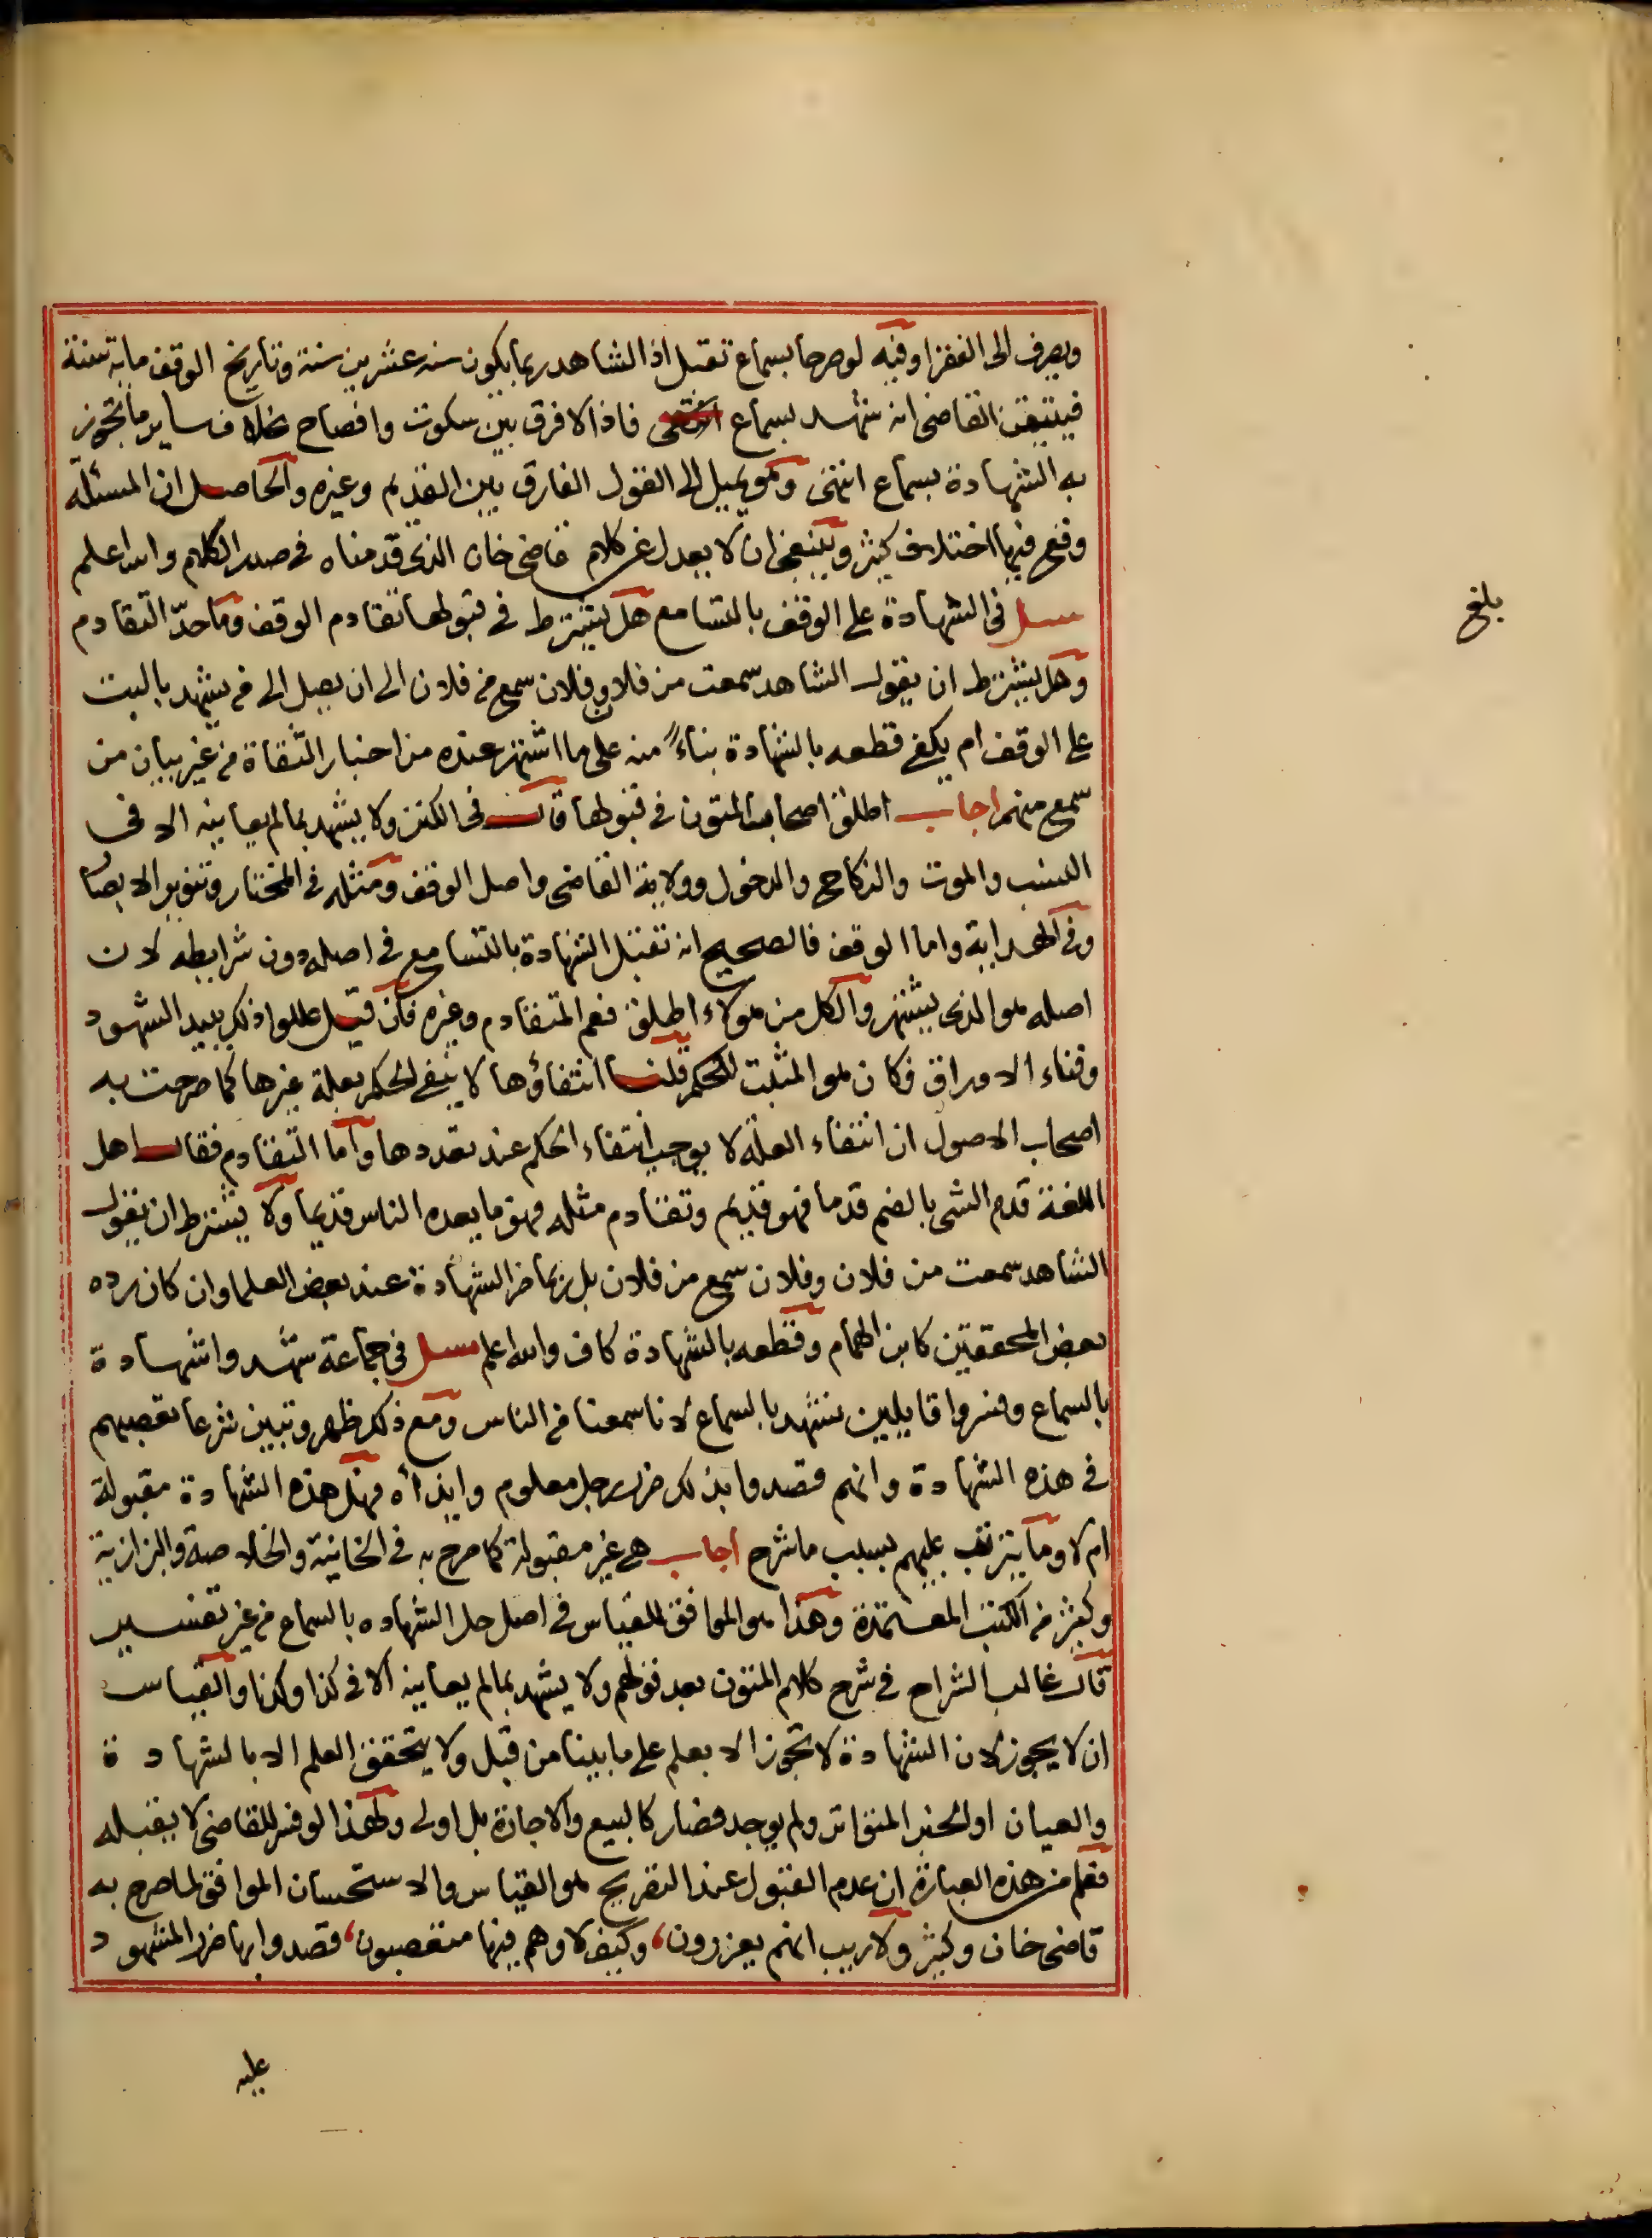 ويصرف الى الفقرا وفيه لو صرحا بسماع تقبل اذ الشاهد ربما يكون سنه عشرين سنة وتاريخ الوقف ماية سنة
فيتيقن القاضي انه شهد بسماع فاذا لا فرق بين سكوت وافصاح بخلاف ساير ما تجوز
به الشهادة بسماع انتهى وهو يميل الى القول الفارق بين القديم وغيره والحاصل ان المسئلة
وقع فيها اختلاف كثير وينبغي ان لا يعدل عن كلام قاضي خان الذي قدمناه في صدر الكلام والله اعلم
سئل في الشهادة على الوقف بالتسامع هل يشترط في قبولها تقادم الوقف وما حدّ التقادم
وهل يشترط ان يقول الشاهد سمعت من فلان وفلان سمع من فلان الى ان يصل الى من يشهد بالبت
على الوقف ام يكفي قطعه بالشهادة بناءً منه على ما اشتهر عنده من اخبار الثقاة من غير بيان من
سمع منهم اجاب اطلق اصحاب المتون في قبولها قال في الكنز ولا يشهد بما لم يعاينه الا في
النسب والموت والنكاح والدخول وولاية القاضي واصل الوقف ومثله في المختار وتنوير الابصار
وفي الهداية واما الوقف فالصحيح انه تقبل الشهادة بالتسامع في اصله دون شرايطه لان
اصله هو الذي يشتهر والكل من هولاء اطلق فعم المتقادم وغيره فان قيل عللوا ذلك ببيد الشهود
وفناء الاوراق فكان هو المثبت للحكم قلنا انتفاؤها لا ينفي الحكم بعلة غيرها كما صرحت به
اصحاب الاصول ان انتفاء العلة لا يوجب انتفاء الحكم عند تعددها واما التقادم فقال اهل
اللغة قدم الشي بالضم قدما فهو قديم وتقادم مثله فهو ما يعده الناس قديما ولا يشترط ان يقول
الشاهد سمعت من فلان وفلان سمع من فلان بل ربما ضر الشهادة عند بعض العلما وان كان رده
بعض المحققين كابن الهمام وقطعه بالشهادة كاف والله اعلم سئل في جماعة شهدوا شهادة
بالسماع وفسروا قايلين نشهد بالسماع لانا سمعنا من الناس ومع ذلك ظهر وتبين شرعا تعصبهم
في هذه الشهادة وانهم قصدوا بذلك ضرر رجل معلوم وايذاه فهل هذه الشهادة مقبولة
ام لا وما يترتب عليهم بسبب ما شرح اجاب هي غير مقبولة كما صرح به في الخانية والخلاصة والبزازية
وكثير من الكتب المعتمدة وهذا هو الموافق للقياس في اصل حل الشهاده بالسماع من غير تفسير
قال غالب الشراح في شرح كلام المتون بعد قولهم ولا يشهد بما لم يعاينه الا في كذا وكذا والقياس
ان لا يجوز لان الشهادة لا تجوز الا بعلم على ما بينا من قبل ولا يتحقق العلم الا بالشهادة
والعيان او الخبر المتواتر ولم يوجد فصار كالبيع والاجازة بل اولى ولهذا لو فسر للقاضي لا يقبله
فعلم من هذه العبارة ان عدم القبول عند التصريح هو القياس والاستحسان الموافق لما صرح به
قاضي خان وكثير ولا ريب انهم يعزرون، وكيف لا وهم فيها متعصبون، قصدوا بها ضرر المشهود
عليه
بلغ